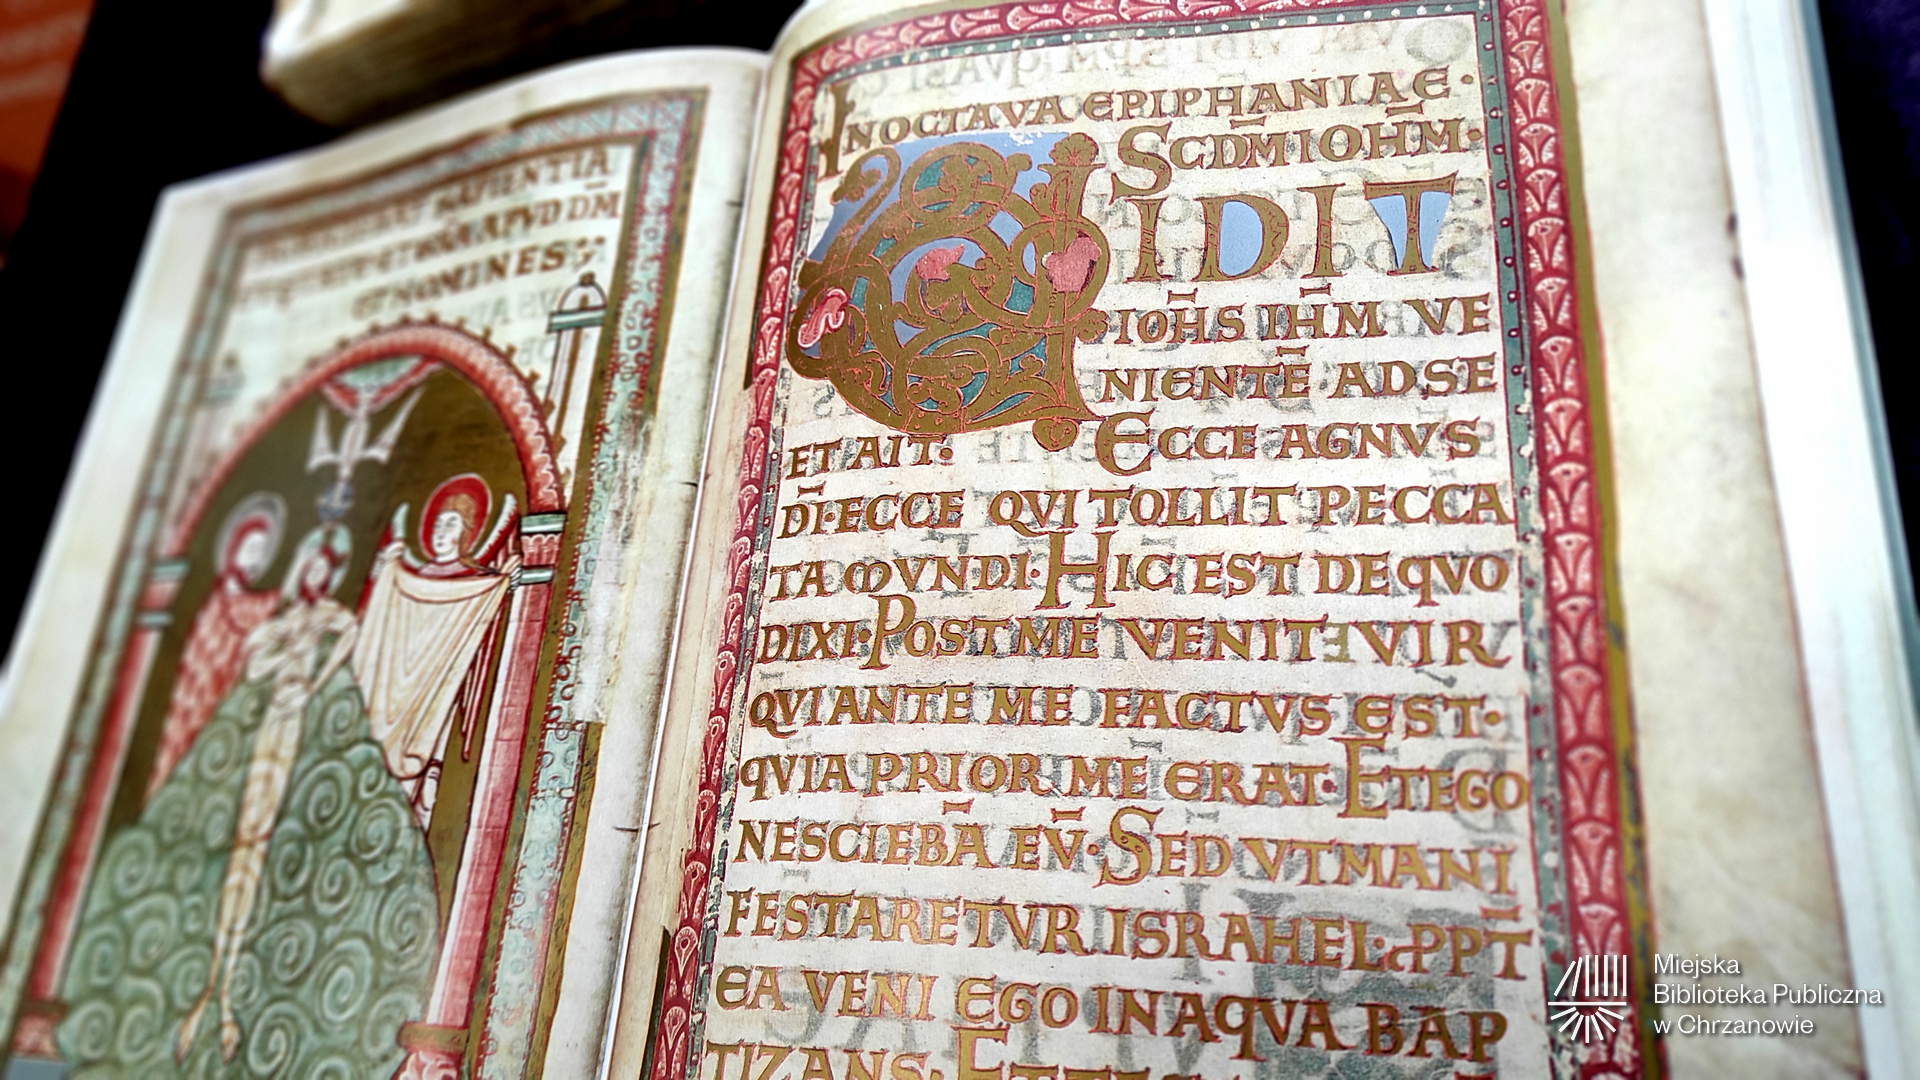 SAPIENTIA
APVD DM̄
ET HOMINES
IN OCTAVA EPIPHANIAE·
SCDM̄ IOHM̄·
VIDIT
IOH̄S IHM̄ VE
NIENTĒ AD SE
ET AIT· ECCE AGNVS
DĪ· ECCE QVI TOLLIT PECCA
TA MVNDI· HIC EST DE QVO
DIXI· POST ME VENIT VIR
QVI ANTE ME FACTVS EST·
QVIA PRIOR ME ERAT· ET EGO
NESCIEBĀ EV̄· SED VT MANI
FESTARETVR ISRAHEL· PPT̄
EA VENI EGO IN AQVA BAP
TIZANS·
Miejska
Biblioteka Publiczna
w Chrzanowie